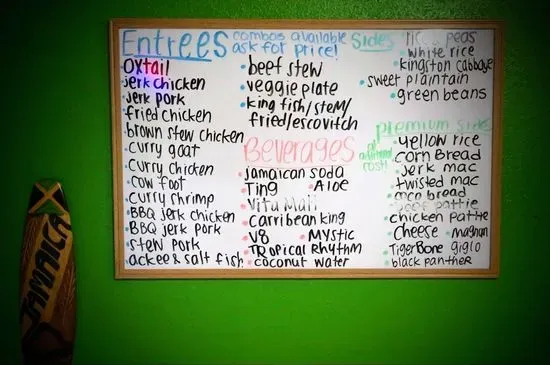 Entrees
oxtail
jerk chicken
jerk pork
fried chicken
brown stew chicken
curry goat
curry chicken
cow foot
curry shrimp
BBQ jerk chicken
BBQ jerk pork
stew pork
ackee & salt fish
combos available
ask for price!
beef stew
veggie plate
king fish/stem/
fried/escovitch
Beverages
jamaican soda
Ting Aloe
Vita Malt
Carribean king
V8 Mystic
Tropical Rhythm
coconut water
Sides
rice & peas
white rice
kingston cabbage
sweet plaintain
green beans
premium sides
at additional cost!
yellow rice
corn Bread
Jerk mac
twisted mac
coco bread
beef pattie
chicken pattie
cheese magnum
TigerBone giglo
black panther
JAMAICA